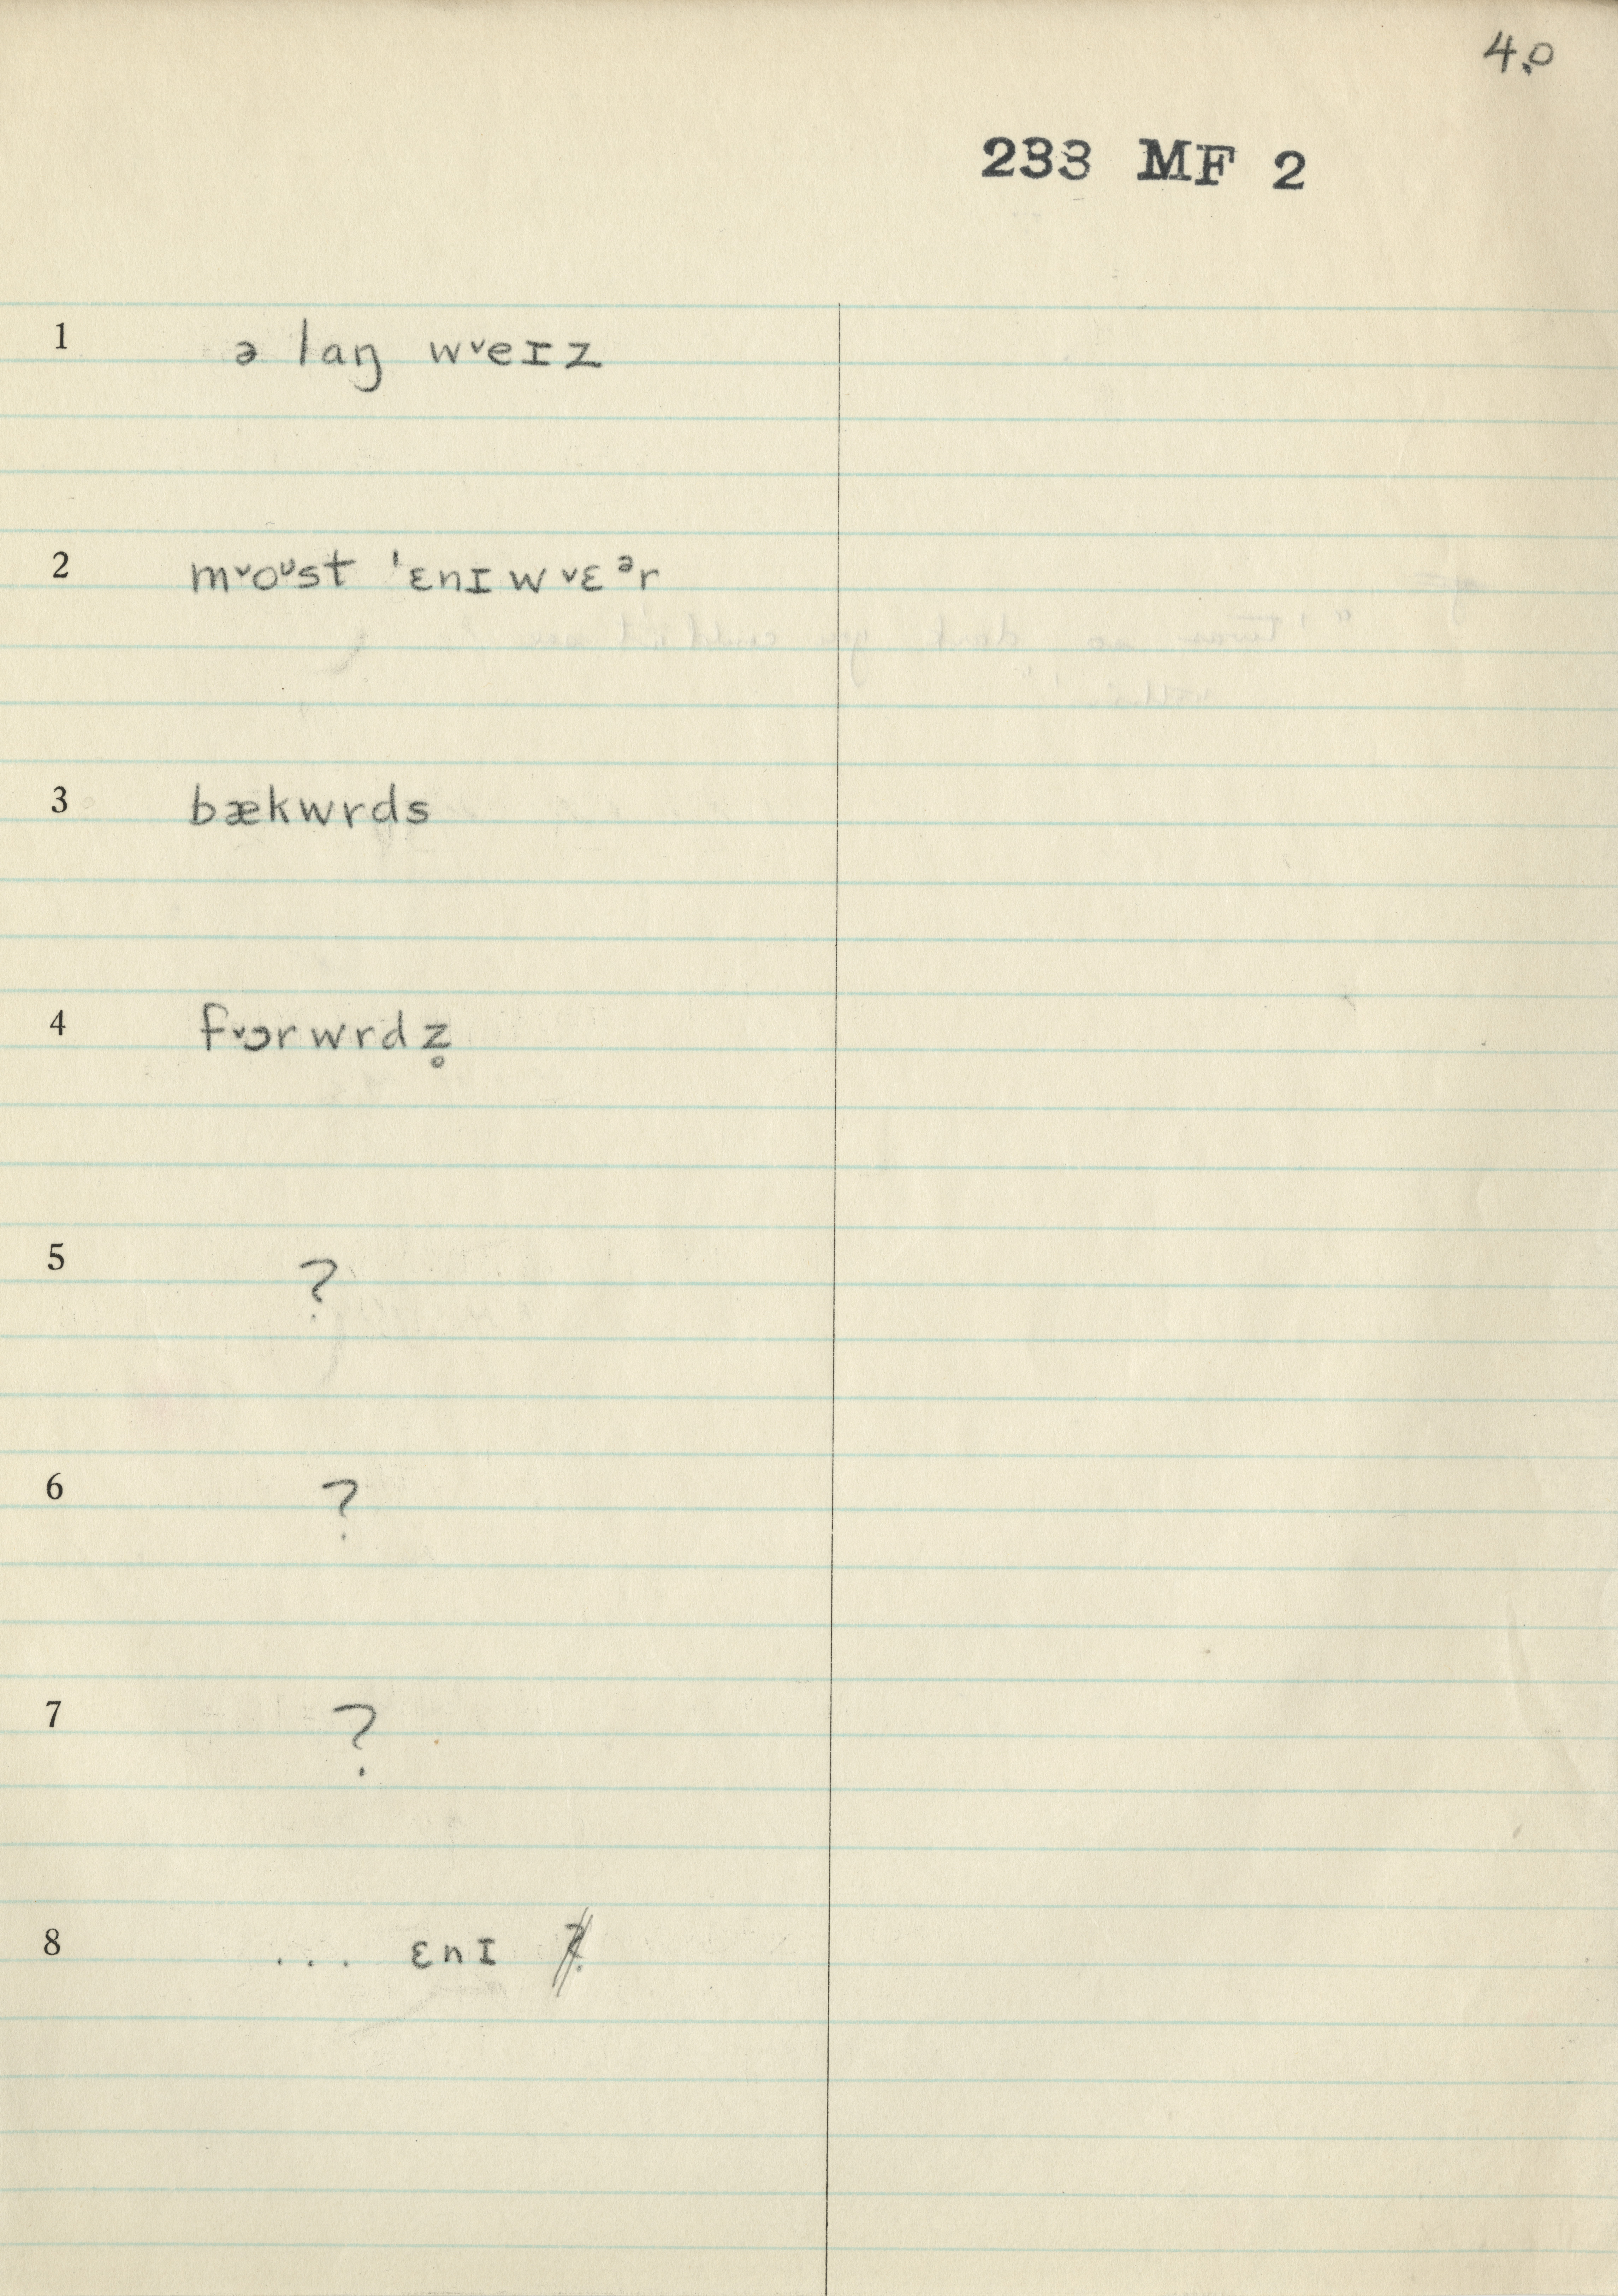 40
233 MF 2
1 ə laŋ w˅eɪz
2 m˅oᶷst ˈɛnɪw˅ɛᵊr
3 bækwrds
4 f˅ɔrwrdz̥
5 ?
6 ?
7 ?
8 ... ɛnɪ